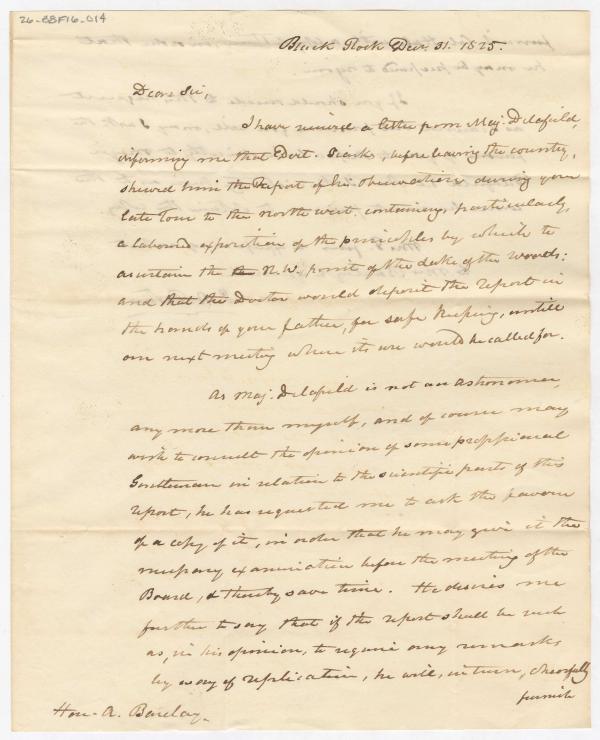 26-BBF16-014
Black Rock Decr. 31. 1825.
Dear Sir,
I have received a letter from Maj. Delafield,
informing me that Doct. Tiarks, before leaving the country,
shewed him the Report of his Observations during your
late Tour to the north west. containing, particularly,
a laboured exposition of the principles by which to
ascertain the N. W. point of the Lake of the Woods:
and that the Doctor would deposit the Report in
the hands of your father, for safe keeping, untill
our next meeting where its use would be called for.
As Maj. Delafield is not an astronomer,
any more than myself, and of course may
wish to consult the opinion of some professional
Gentleman in relation to the scientific parts of this
report, he has requested me to ask the favour
of a copy of it, in order that he may give it the
necessary examination before the meeting of the
Board, & thereby save time. He desires me
further to say that if the report shall be such
as, in his opinion, to require any remarks
by way of replication, he will, in turn, chearfully
furnish
Hon. A. Barclay.